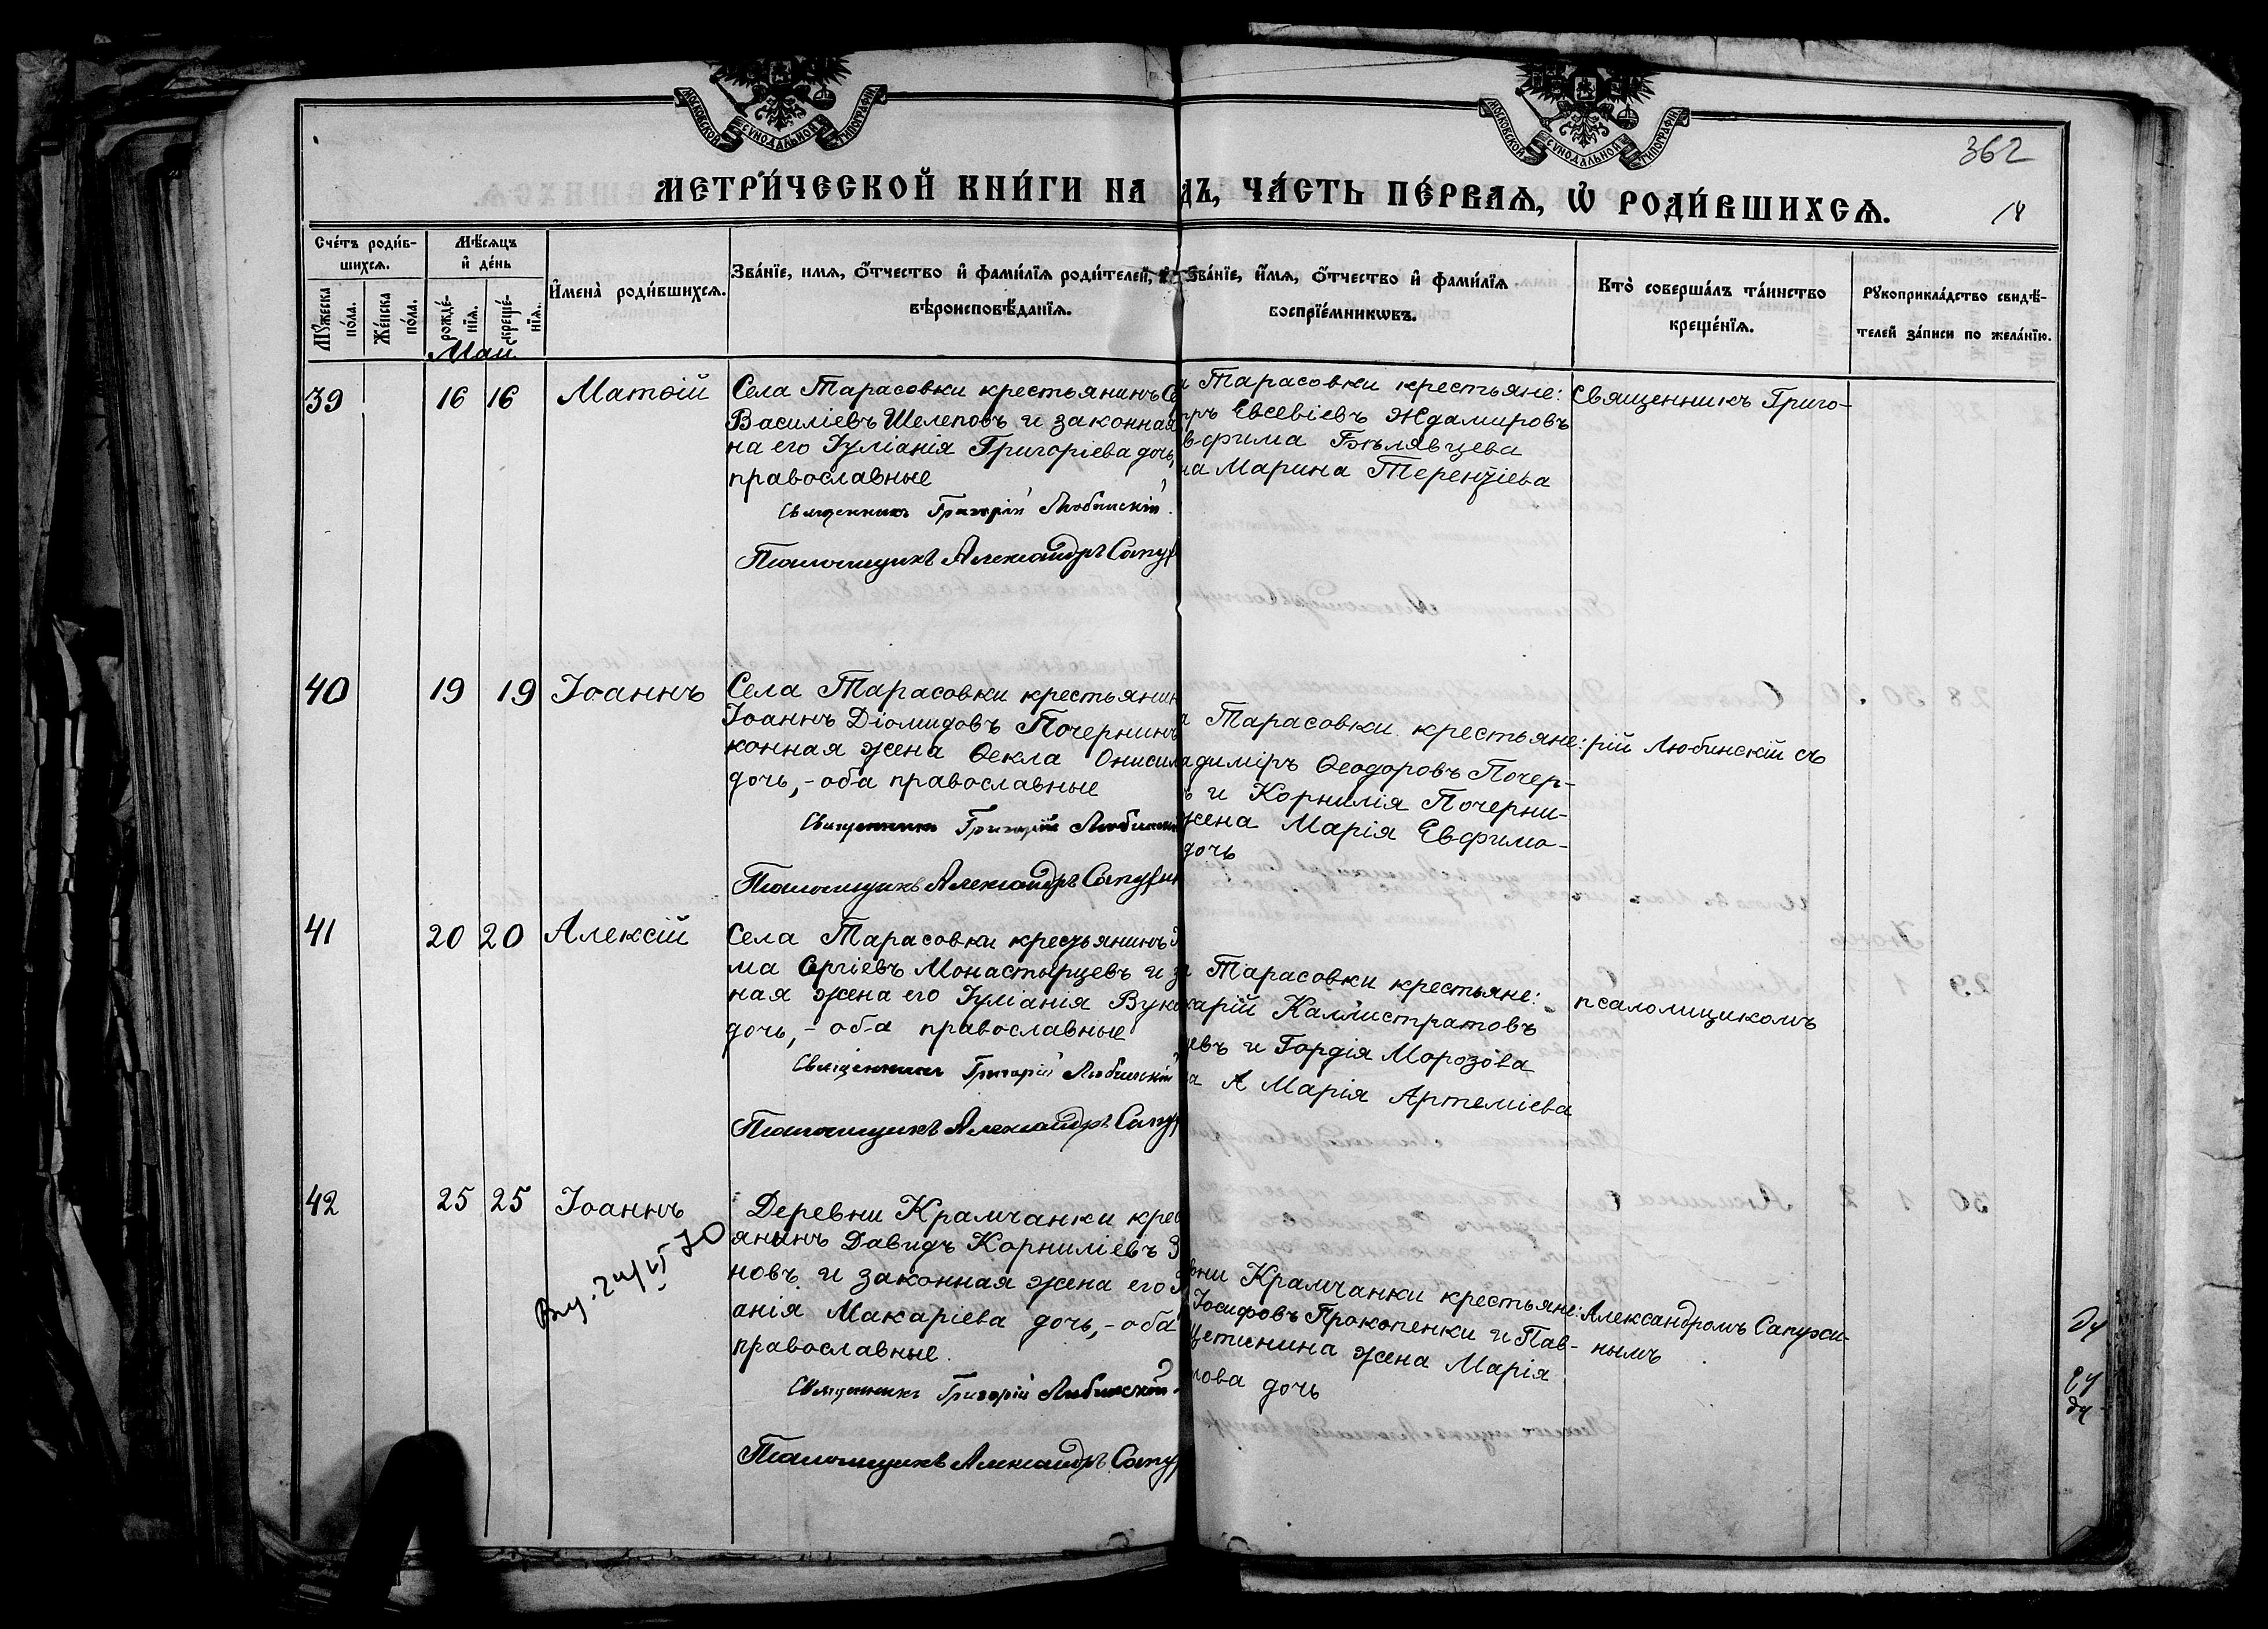 МОСКОВСКОЙ СѴНОДАЛЬНОЙ ТИПОГРАФІИ
МОСКОВСКОЙ СѴНОДАЛЬНОЙ ТИПОГРАФІИ
362
МЕТРИ́ЧЕСКОЙ КНИ́ГИ НА
ДЪ, ЧА́СТЬ ПЕ́РВАѦ, Ѡ҆ РОДИ́ВШИХСѦ.
18
Сче́тъ роди́в-
шихсѧ.
Мѣ́сѧцъ
и҆ де́нь
Мꙋжеска
по́ла.
Же́нска
по́ла.
рожде́-
нїѧ.
креще́-
нїѧ.
И҆мена̀ роди́вшихсѧ.
Зва́нїе, имѧ, ѻ҆́тчество и҆ фами́лїѧ роди́телей, и҆
вѣроисповѣ́данїѧ.
Зва́нїе, и҆́мѧ, ѻ҆́тчество и҆ фами́лїѧ
воспрїе́мникѡвъ.
Кто̀ соверша́лъ та́инство
креще́нїѧ.
Рꙋкоприкла́дство свидѣ́-
телей за́писи по жела́нїю.
Май
39 16 16 Матѳій
Села Тарасовки крестьянинъ Се
Василіевъ Шелеповъ и законная
на его Іуліанія Григоріева дочь,
православные
Священникъ Григорій Любинскій
Псаломщикъ Александръ Сапу
а Тарасовки крестьяне:
ръ Евсевіевъ Ждамировъ
вфима Бѣлявцева
на Марина Терентіева
Священникъ Григо-
40 19 19 Іоаннъ
Села Тарасовки крестьянин
Іоаннъ Діомидовъ Почернинъ
конная жена Ѳекла Онисим
дочь, - оба православные
Священникъ Григорій Любински
Псаломщикъ Александръ Сапужи
а Тарасовки крестьяне:
адиміръ Ѳеодоровъ Почер-
ъ и Корнилія Почерни-
жена Марія Евфимо-
дочь
рій Любинскій съ
41 20 20 Алексій
Села Тарасовки крестьянинъ
ма Сргіевъ Монастырцевъ и з
ная жена его Іуліанія Вуко
дочь, - оба православные
Священникъ Григорій Любинскій
Псаломщикъ Александръ Сапу
а Тарасовки крестьяне:
карій Каллистратовъ
евъ и Гордія Морозова
а А Марія Артеміева
псаломщикомъ
42 25 25 Іоаннъ
Деревни Крамчанки крес
янинъ Давидъ Корниліевъ З
новъ и законная жена его
анія Макаріева дочь, - оба
православные.
Священникъ Григорій Любинскій
Псаломщикъ Александръ Сапу
вни Крамчанки крестьяне:
Іосифовъ Прокопенки и Пав-
Цетинина жена Марія
лова дочь
Александромъ Сапужи-
нымъ